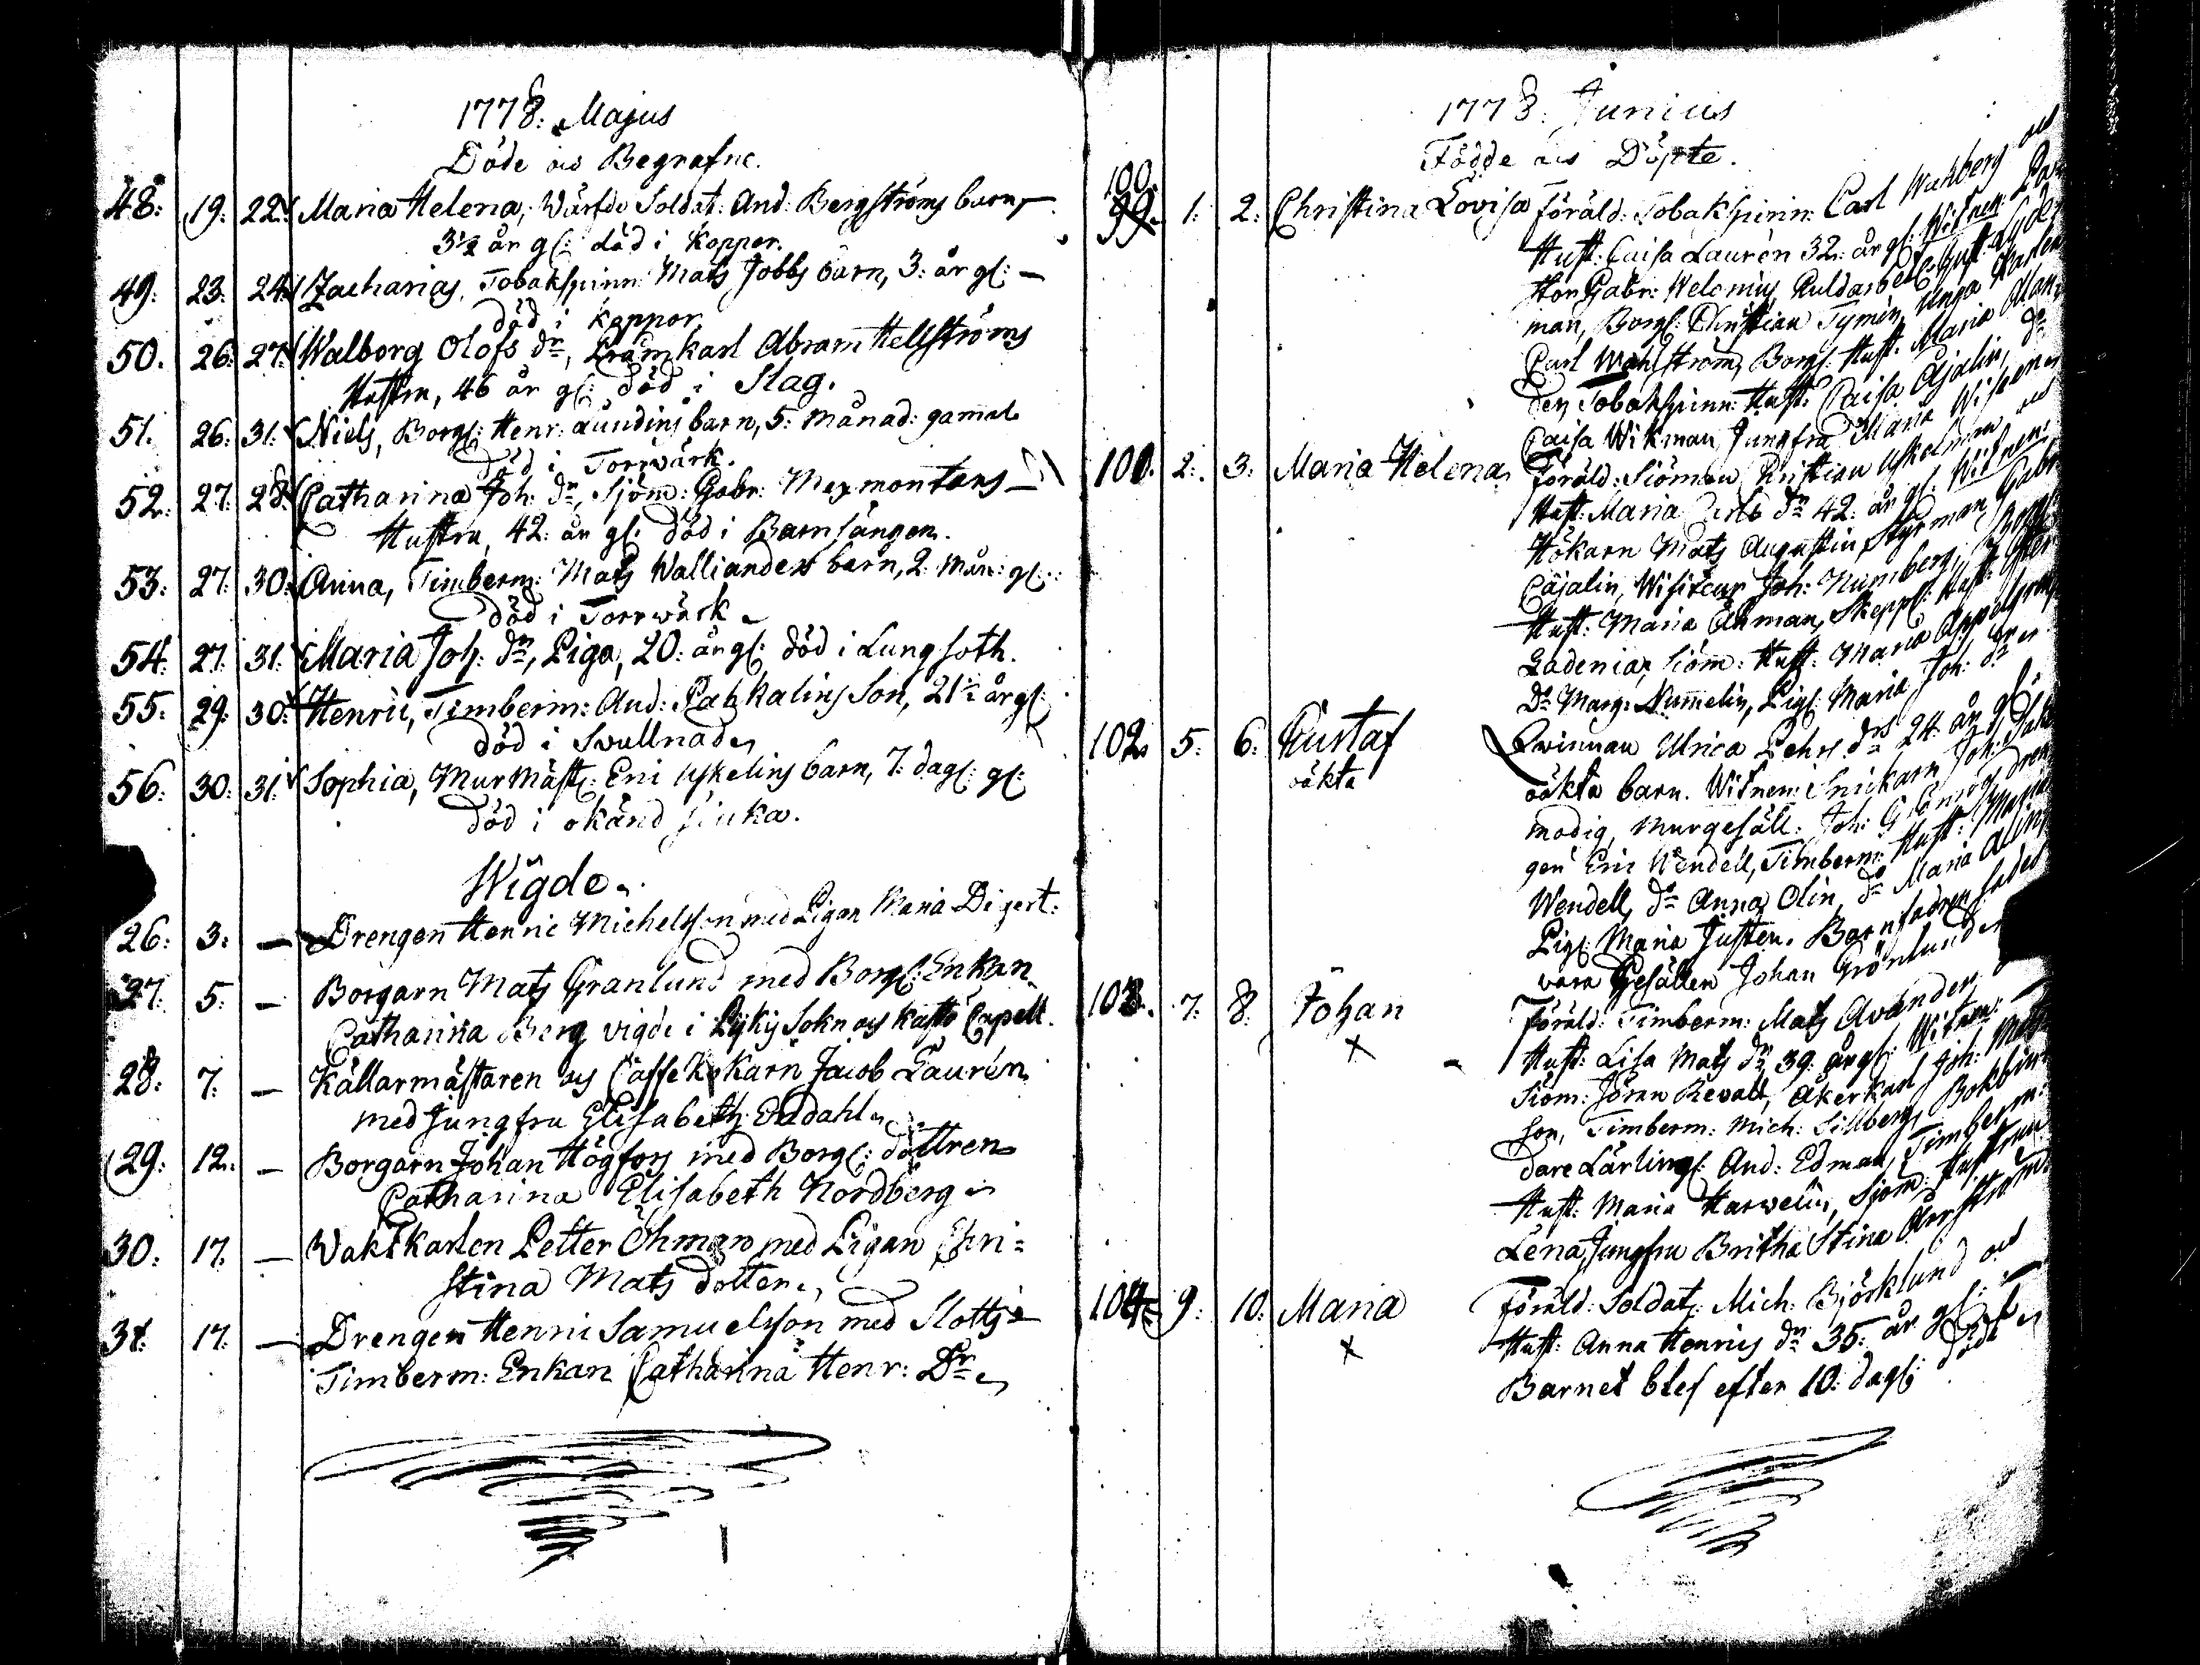 1778: Majus
Döde och Begrafne.
48: 19: 22: Maria Helena, Wärfde Soldat: And: Bergströms barn,
3½ år gl: död i koppor.
49: 23: 24: Zacharias, Tobakspinn: Mats Jobbs barn, 3: år gl: –
död i koppor
50. 26: 27: Walborg Olofs dr, Främkarl Abram Hellströms
Hustru, 46 år gl: död i Slag.
51. 26: 31: Niels, Borgl: Henr: Lundins barn, 5: månad: gamal
död i Torrwärk.
52. 27: 28: Catharina Joh: dr, Sjöm: Gabr: Mexmontans –
Hustru, 42: år gl: död i Barnsängen.
53: 27: 30: Anna, Timberm: Mats Wallianders barn, 2: Mån: gl:
död i Torrwärk
54: 27: 31: Maria Joh: dr, Piga, 20: år gl: död i Lungsoth.
55: 29: 30: Henric, Timberm: And: Pahkalins Son, 21½ år gl:
död i Svullnad
56: 30: 31: Sophia, MurMäst: Eric Uskelins barn, 7: dagl: gl:
död i okänd siuka.
Wigde.
26: 3: – Drengen Henric Michelsson med Pigan Maria Digert:
27: 5: – Borgarn Mats Granlund med Borgl: Enkan
Catharina Berg vigde i Pykis Sokn och Kastö Capell.
28: 7: – Källarmästaren och Caffekokarn Jacob Laurén
med Jungfru Elisabeth
29: 12: – Borgarn Johan Högfors med Borgl: dottren
Catharina Elisabeth Nordberg
30: 17: – Waktkarlen Petter Öhman med Pigan Chri=
stina Mats dotter
31: 17: – Drengen Henric Samuelsson med Slotts=
Timberm: Enkan Catharina Henr: Dr
1778: Junius
Födde och Döpte.
100.
99. 1: 2: Christina Lovisa Föräld: Tobakspinn: Carl Wahlberg och
Hust: Caisa Laurén 32: år gl: Witnen:
Gabr: Welonius, Guldarbet: Gust:
man, Borgl: Christian Tymén, Unga
Carl Wahlström, Borgl: Hust: Maria
den, Tobakspinn: Hust: Caisa Cajalin, do
Caisa Wikman, Jungfru Maria
100. 2: 3: Maria Helena Föräld: Siöman Christian och
Hust: Maria dr 42: år gl: Witnen:
Hökarn Mats Augustin, Styrman Gabr
Cajalin, Wisiteur Joh: Numberg, Borgl:
Hust: Maria Åhman, Skeppl: Hust:
Gadenia, Siöm: Hust: Maria
Do Marg: Nummelin, Pigl: Maria Joh: dr
102. 5: 6: Gustaf Qwinnan Ulrica Pehrs drs 24: år gl:
oäkta oäkta barn. Witnen: Snickarn Joh:
modig, Murgesäll: Joh: Dren
gen Eric Wendell, Timberm: Hust: Maria
Wendell, do Anna Olin, do Maria
Pigl: Maria Justen. Barnfadren
vara Gesällen Johan Grönlund
103. 7: 8: Johan Föräld: Timberm: Mats Avander
x Hust: Lisa Mats dr 39: år gl: Witnen:
Siöm: Jöran Revall, Åkerkarl Joh:
son, Timberm: Mich: Sillberg, Bokbin
dare Lärlingl: And: Edman, Timberm:
Hust: Maria Harwelin, Sjöm: Hustrun
Lena, Jungfru Britha Stina
104: 9: 10: Maria Föräld: Soldat: Mich: Björklund och
x Hust: Anna Henrics dr 35: år gl:
Barnet blef efter 10: dagl: